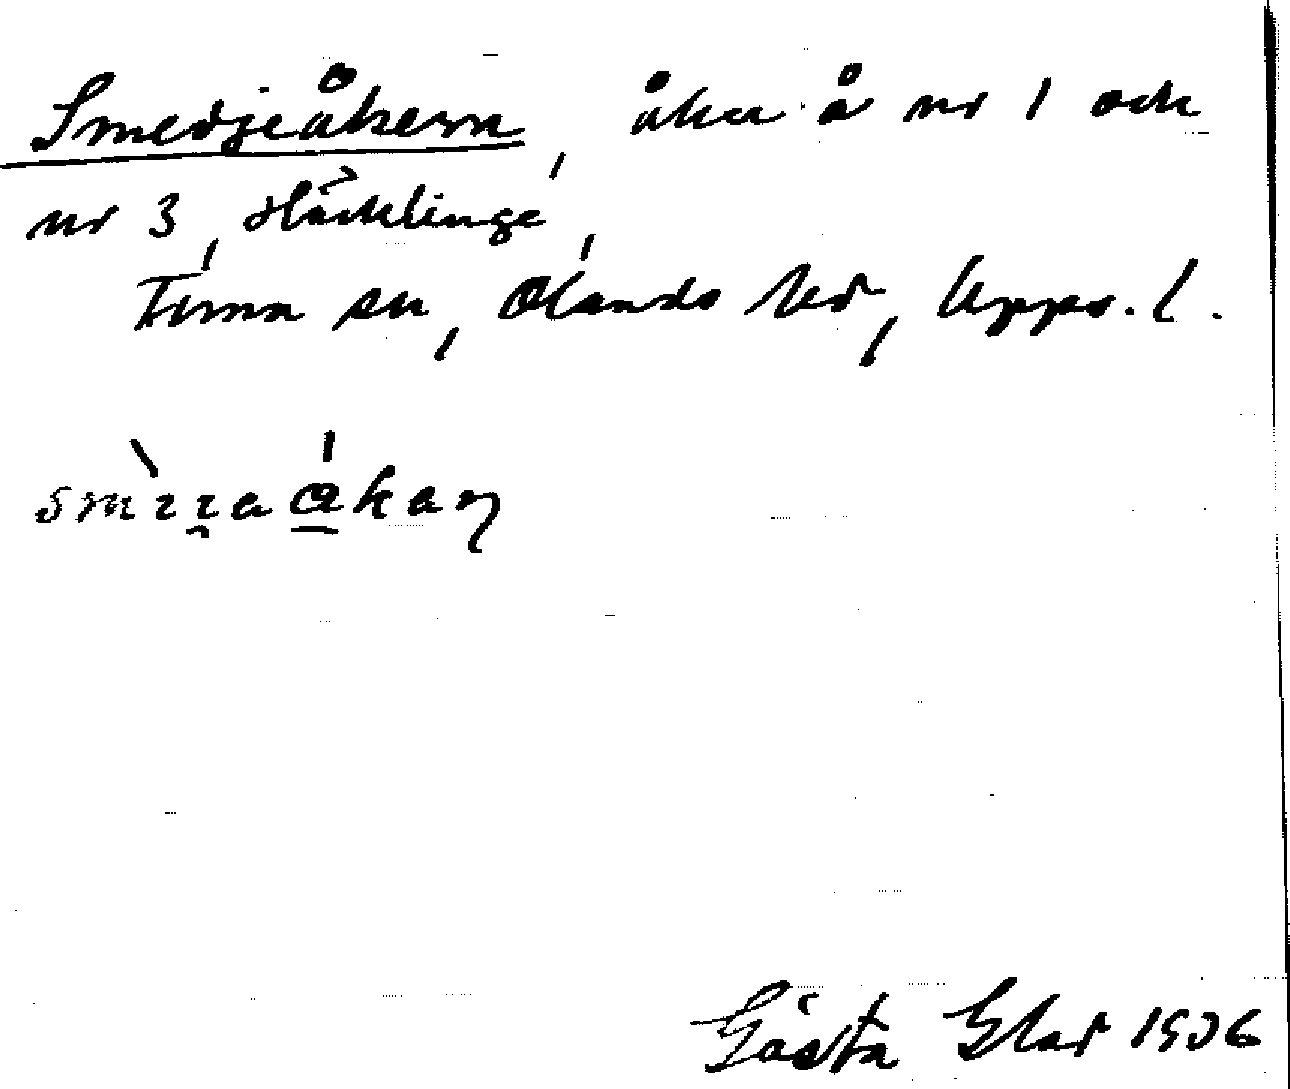 Smedjeåkern, åker å nr 1 och
nr 3, Häcklinge,
Tuna sn, Olands hd, Upps. l.
Gösta Elad 1936